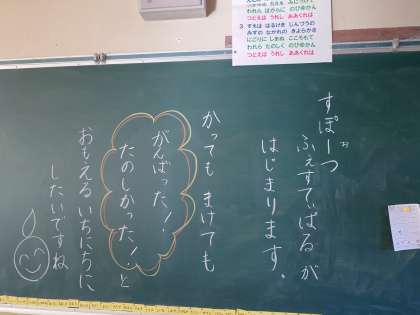 つどえば うれし ああくれは
3 すえは はるけき じんづうの
みすの ながれの きよらかさ
にごりに しまぬ こころもて
われら たのしく のびゆかん
つどえば うれし ああくれは
すぽーつ
お
ふぇすてぃばるが
はじまります。
かっても まけても
がんばった!
たのしかった!と
おもえるいちにちに
したいですね